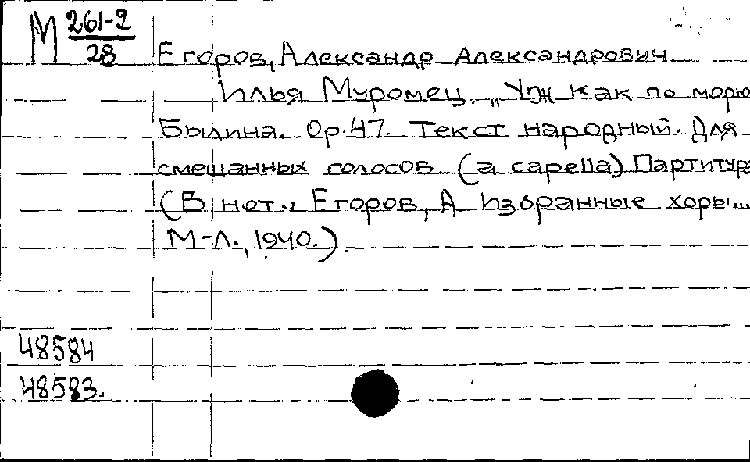 М 261-2
28
Егоров, Александр Александрович
Илья Муромец. „Уж как по морю
Былина. Op.47. Текст народный. Для
смешанных голосов (a capella) Партитура
(В нот.: Егоров, А Избранные хоры...
М-Л., 1940.)
48584
48583.